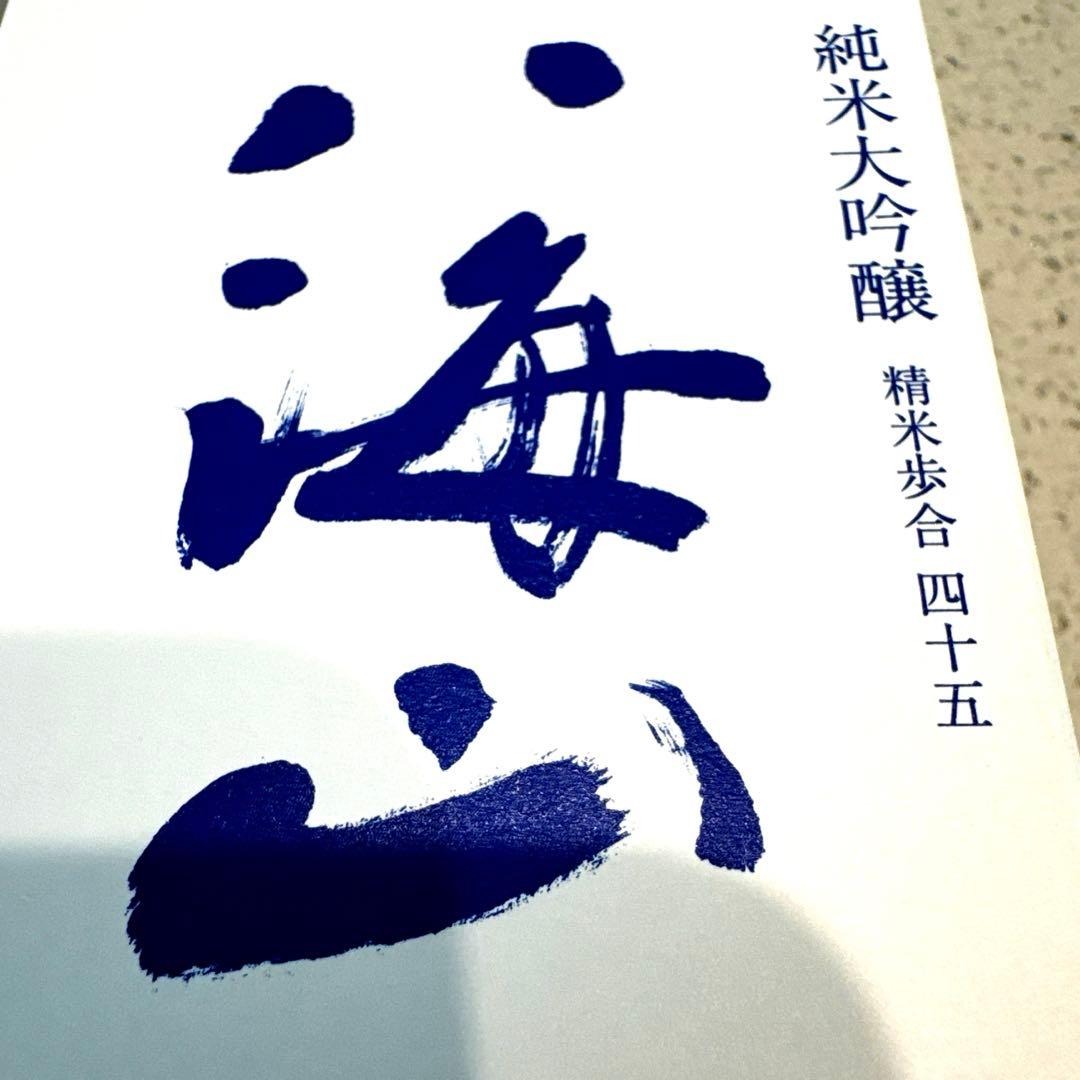 純米大吟醸 精米歩合 四十五
八海山